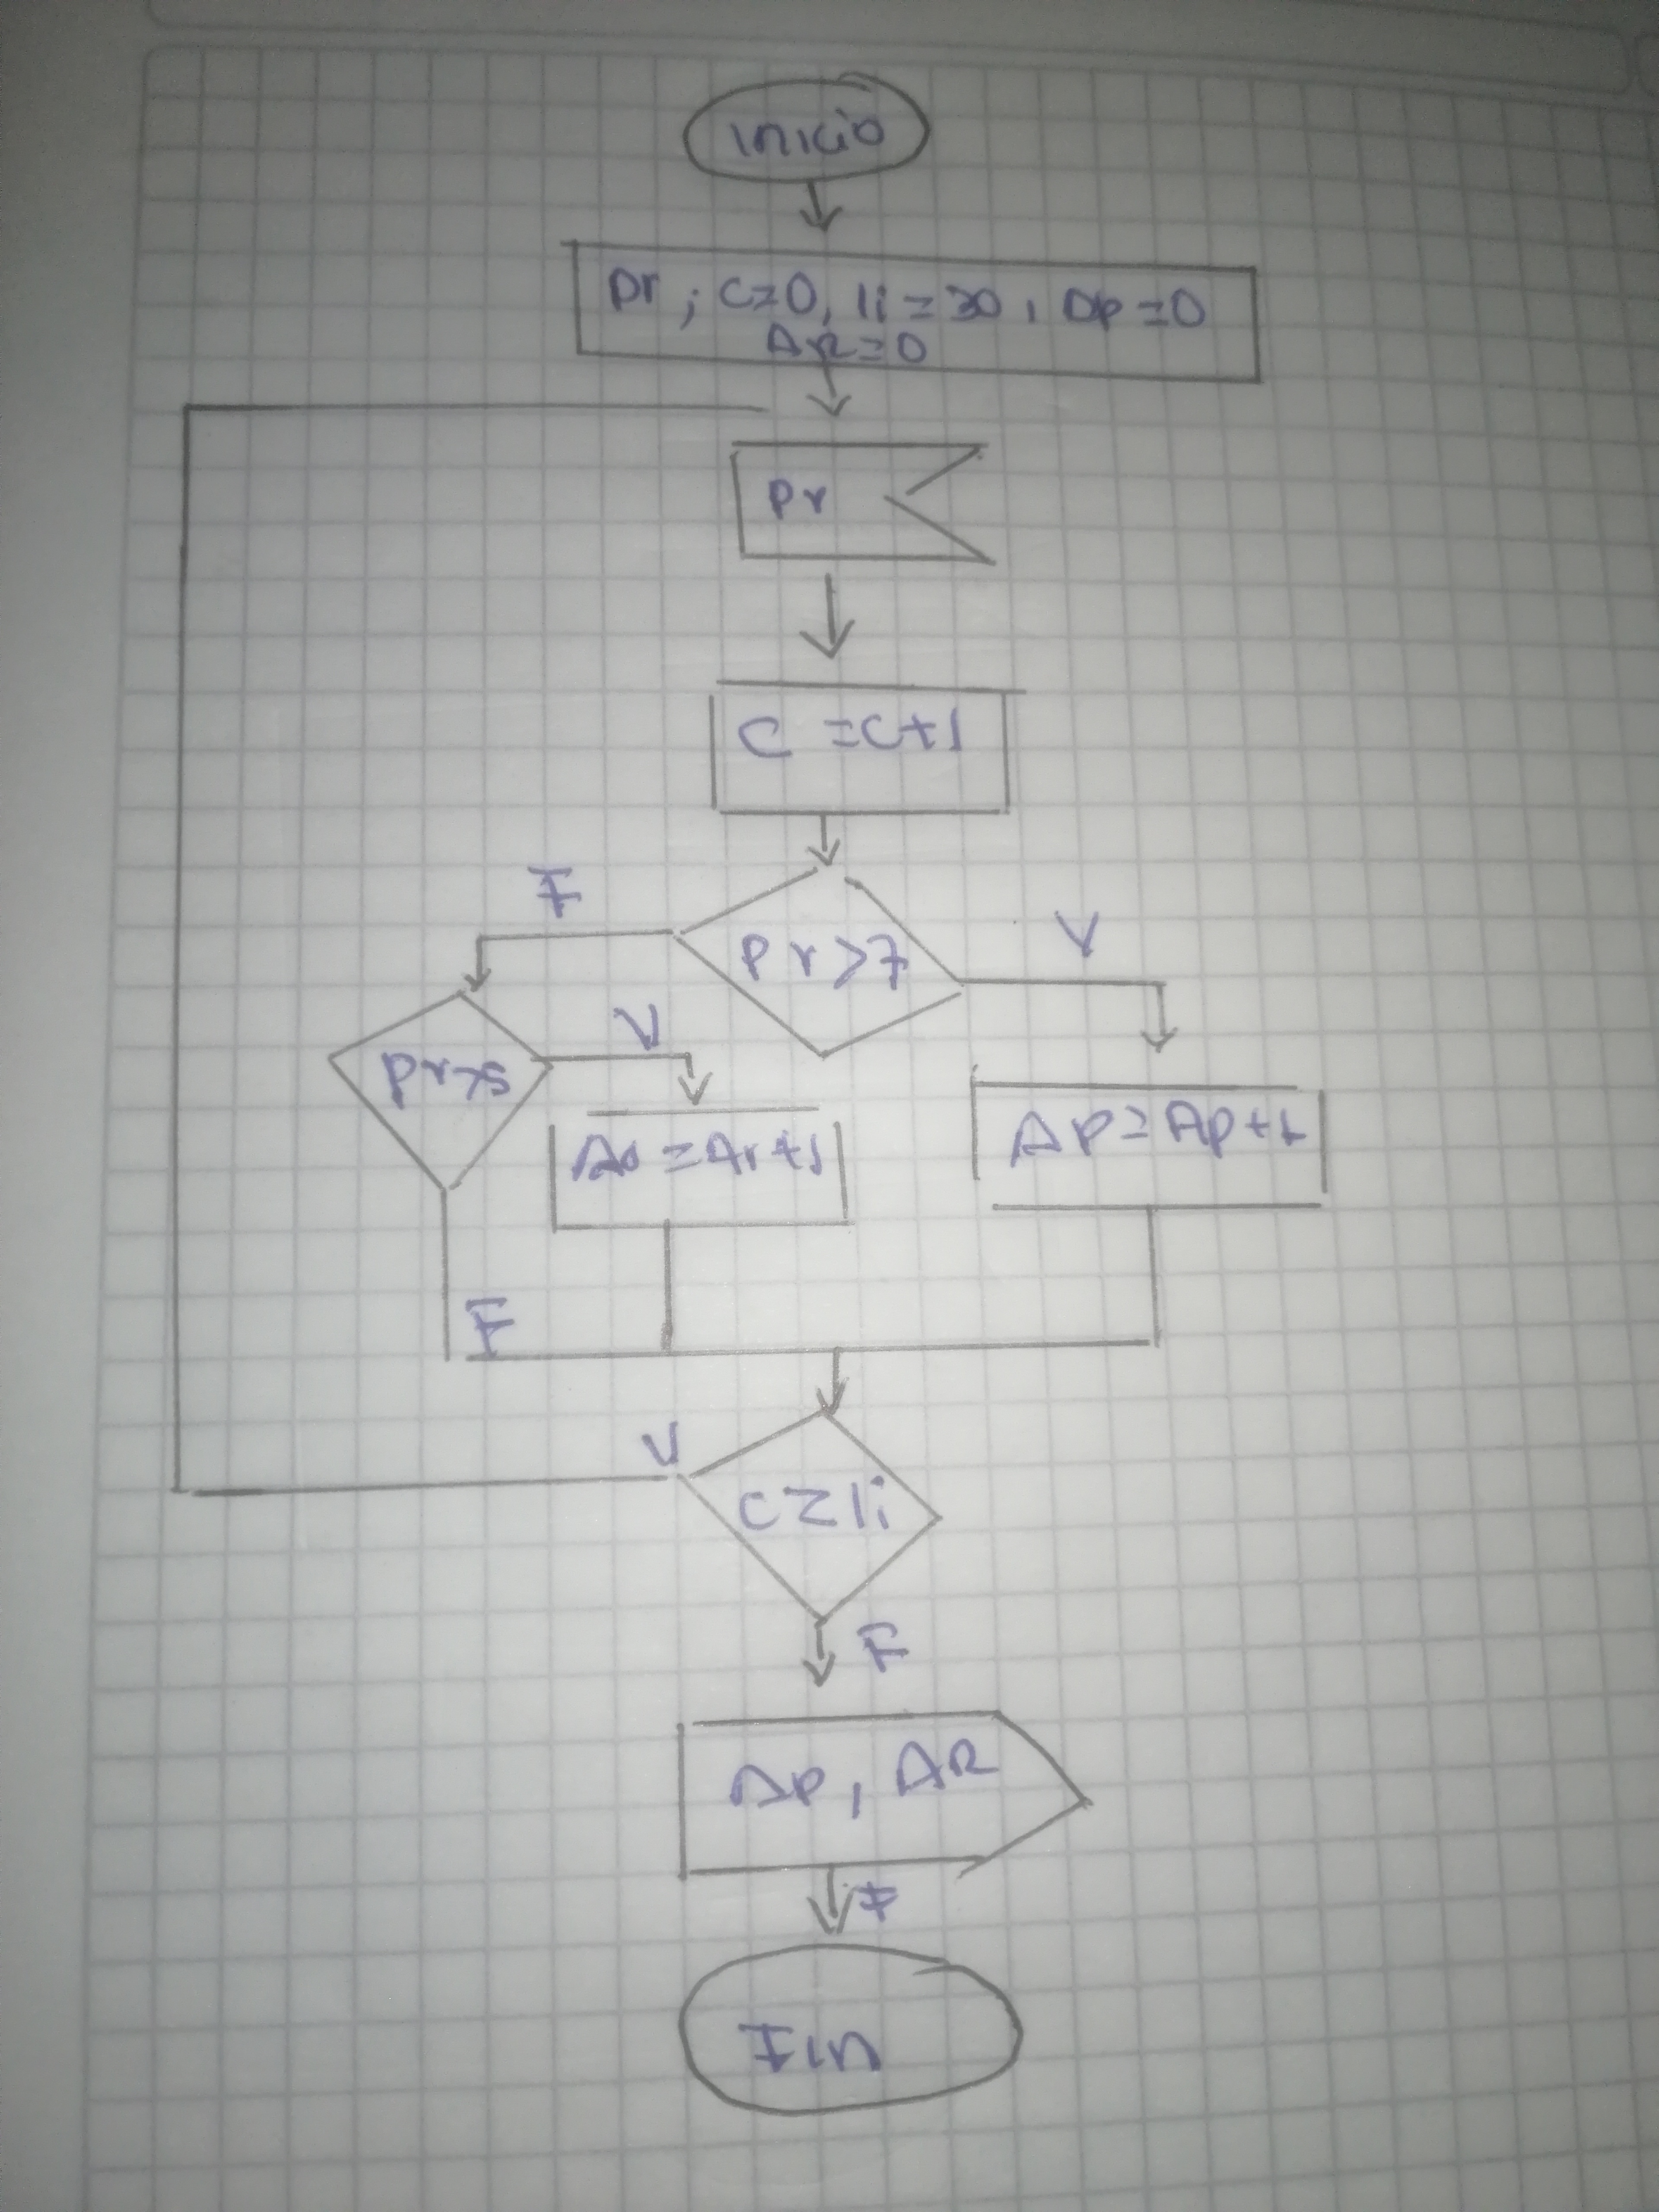 inicio
pr ; c=0, li = 30, Ap = 0
AR = 0
pr
C = C+1
F
V
pr>7
V
pr>5
Ar = Ar+1
Ap = Ap+1
F
V
C = li
F
Ap, AR
F
Fin